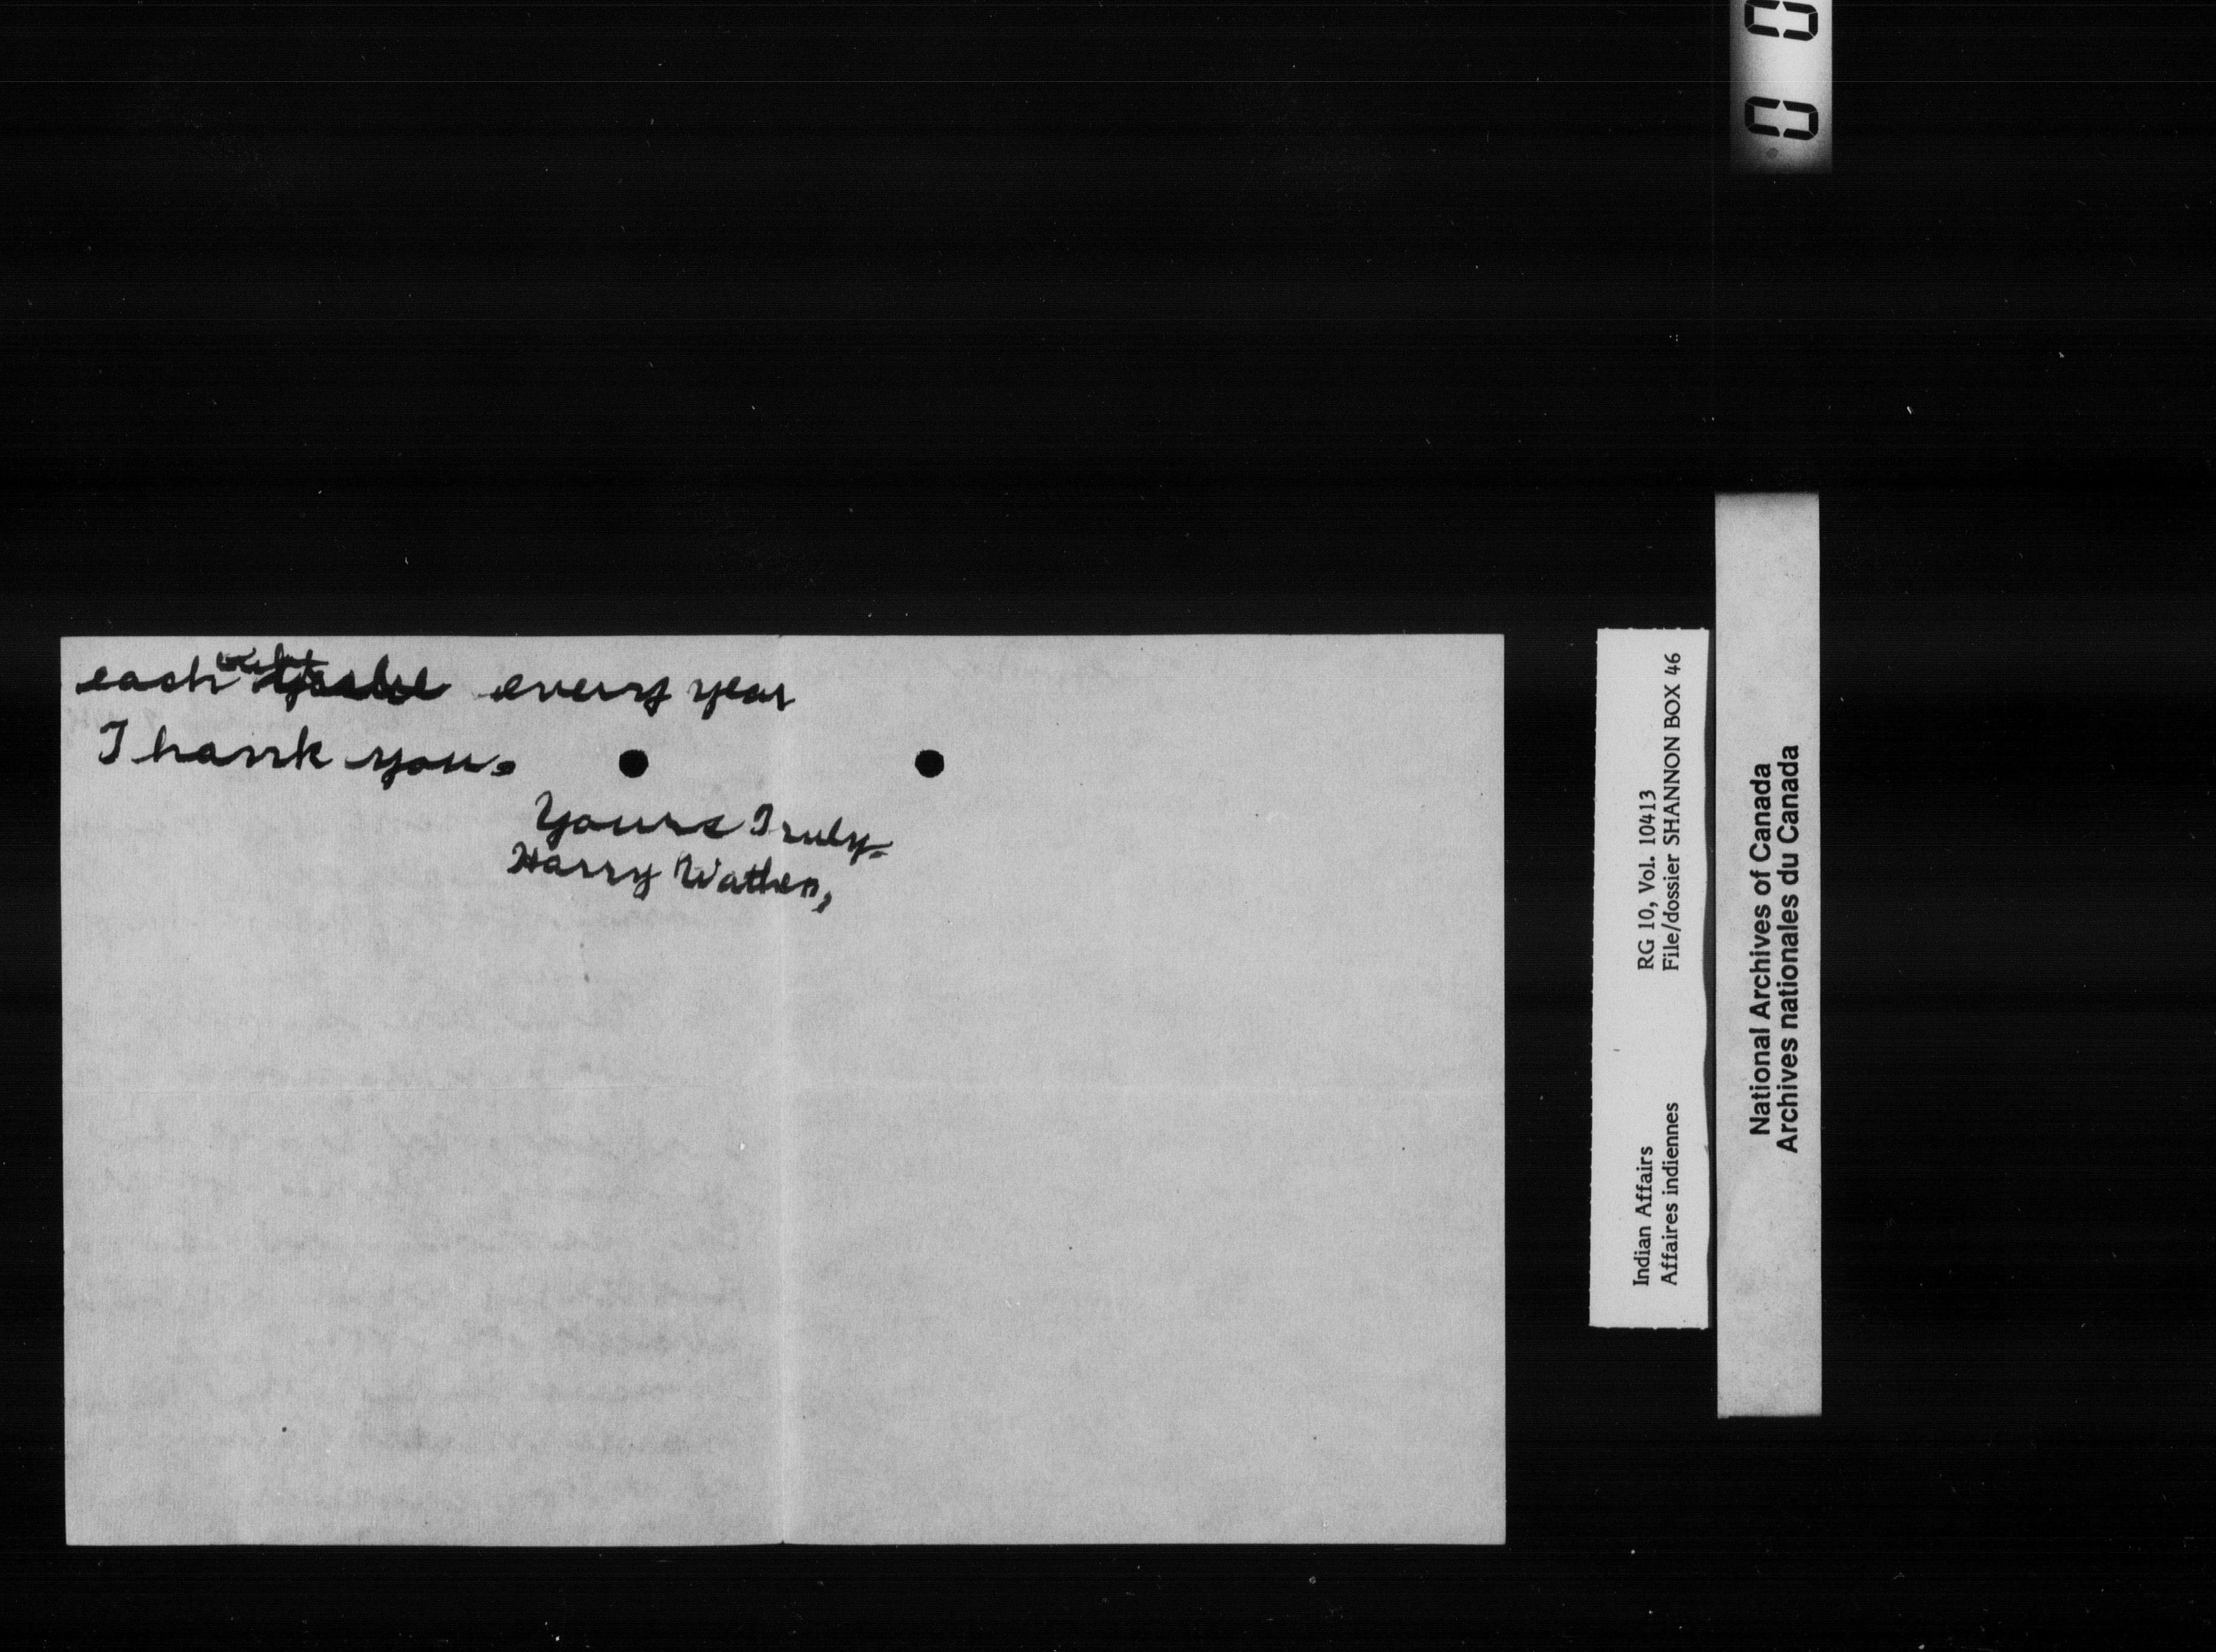 each every year
Thank you.
Yours Truly.
Harry Wathen,
RG 10, Vol. 10413
File/dossier SHANNON BOX 46
Indian Affairs
Affaires indiennes
National Archives of Canada
Archives nationales du Canada
0 0